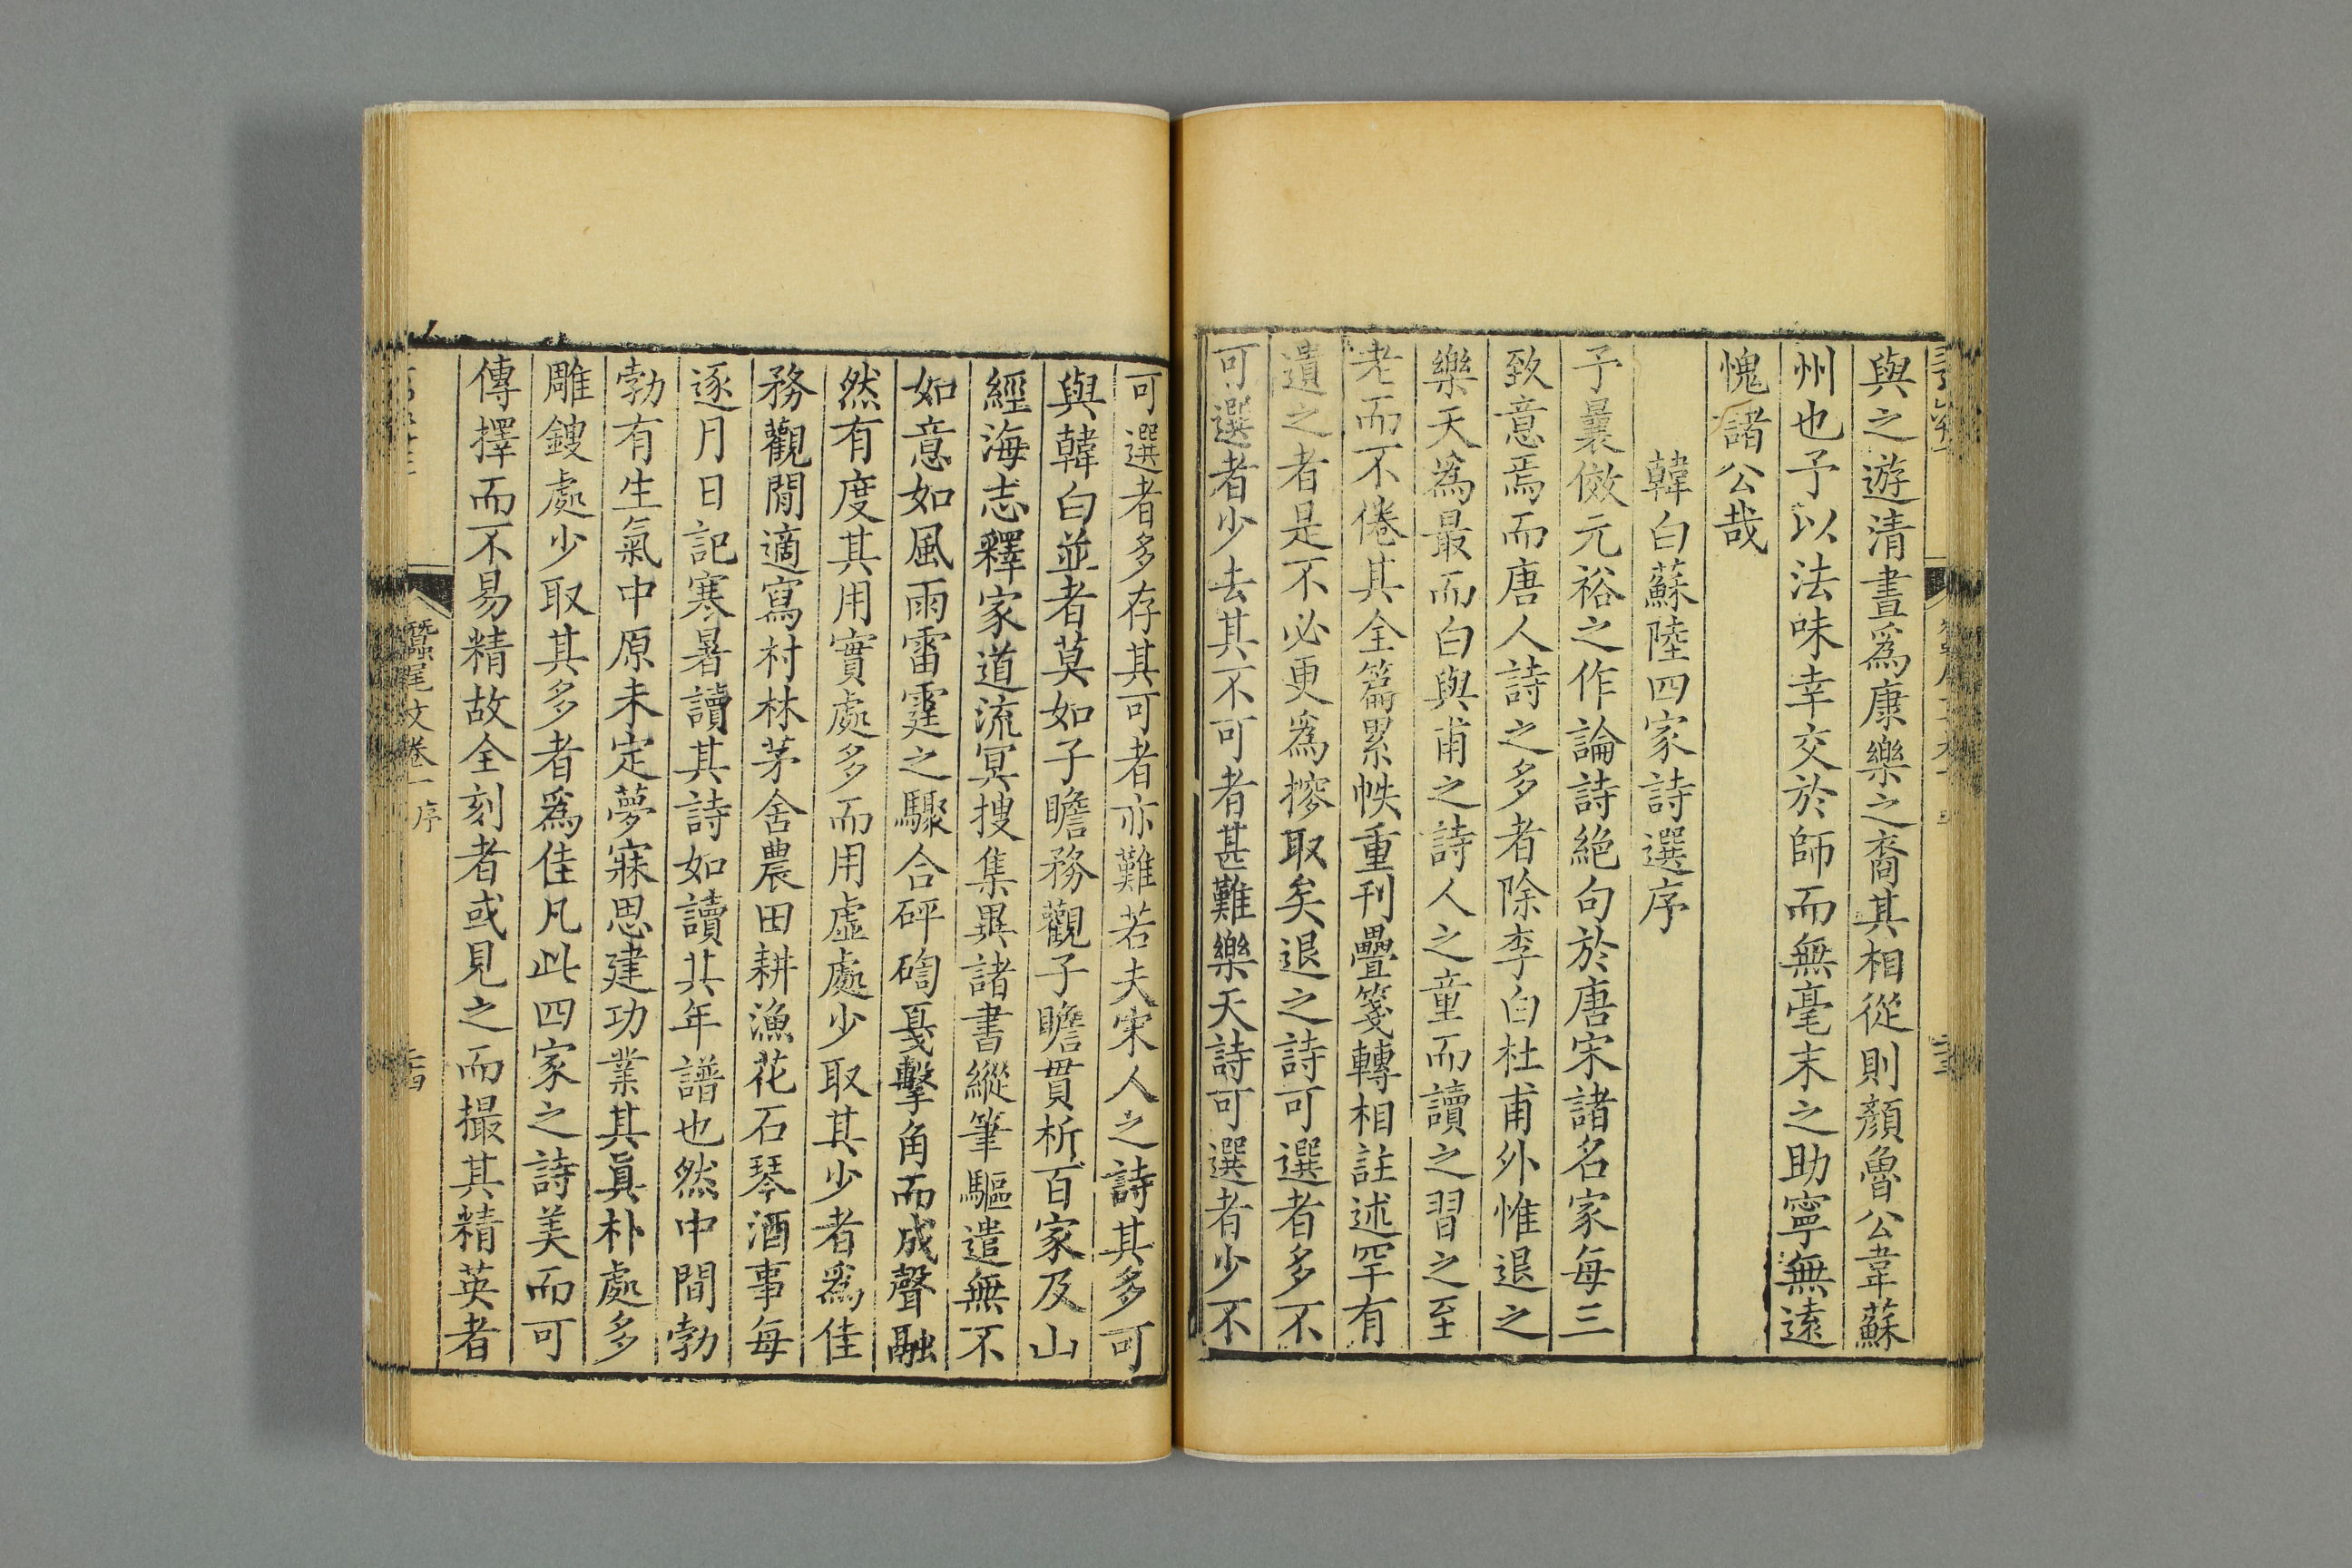 與之遊清晝爲康樂之裔其相從則顏魯公韋蘇
州也予以法味幸交於師而無毫末之助寧無遠
愧諸公哉
韓白蘇陸四家詩選序
予曩倣元裕之作論詩絕句於唐宋諸名家每三
致意焉而唐人詩之多者除李白杜甫外惟退之
樂天爲最而白與甫之詩人之童而讀之習之至
老而不倦其全篇累帙重刊疊箋轉相註述罕有
遺之者是不必更爲㨨取矣退之詩可選者多不
可選者少去其不可者甚難樂天詩可選者少不
可選者多存其可者亦難若夫宋人之詩其多可
與韓白並者莫如子瞻務觀子瞻貫析百家及山
經海志釋家道流冥搜集異諸書縱筆驅遣無不
如意如風雨雷霆之驟合砰磕戛擊角而成聲融
然有度其用實處多而用虛處少取其少者爲佳
務觀閒適寫村林茅舍農田耕漁花石琴酒事每
逐月日記寒暑讀其詩如讀其年譜也然中間勃
勃有生氣中原未定夢寐思建功業其眞朴處多
雕鎪處少取其多者爲佳凡此四家之詩美而可
傳擇而不易精故全刻者或見之而撮其精英者
蠶尾文卷一 序
二十四